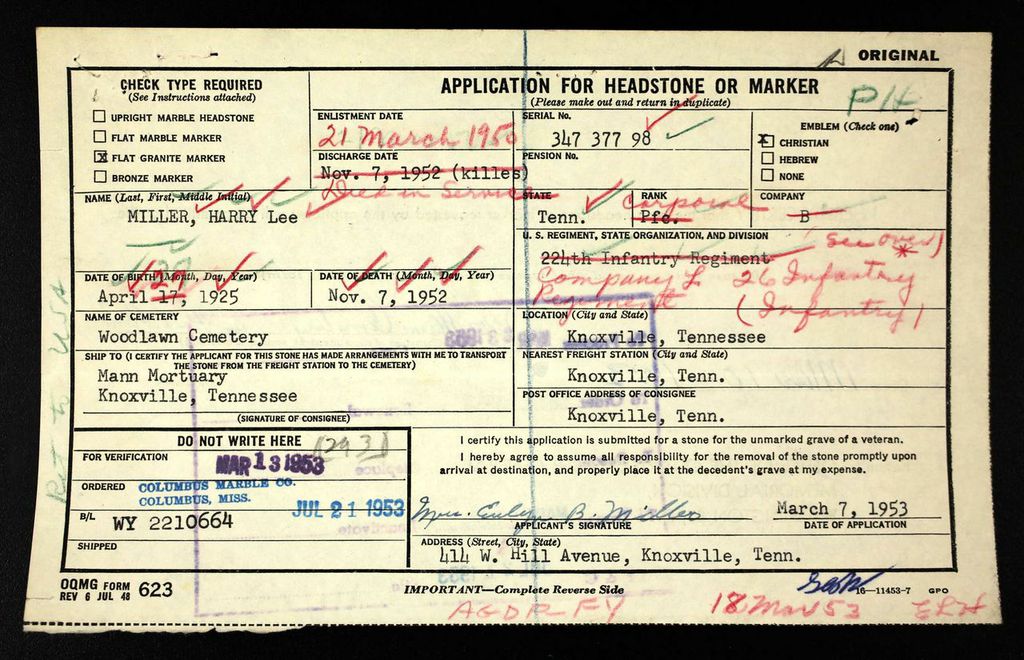 ORIGINAL
CHECK TYPE REQUIRED
(See Instructions attached)
UPRIGHT MARBLE HEADSTONE
FLAT MARBLE MARKER
X FLAT GRANITE MARKER
BRONZE MARKER
APPLICATION FOR HEADSTONE OR MARKER
(Please make out and return in duplicate)
ENLISTMENT DATE
21 March 1950
DISCHARGE DATE
Nov. 7, 1952 (killes)
Died in Service
SERIAL No.
347 377 98
PENSION No.
PH
EMBLEM (Check one)
X CHRISTIAN
HEBREW
NONE
NAME (Last, First, Middle Initial)
MILLER, HARRY Lee
STATE
Tenn.
RANK
Corporal
Pfc.
COMPANY
B
U. S. REGIMENT, STATE ORGANIZATION, AND DIVISION
(see over)
224th Infantry Regiment *
Company L 26 Infantry
Regiment (Infantry)
DATE OF BIRTH (Month, Day, Year)
April 17, 1925
DATE OF DEATH (Month, Day, Year)
Nov. 7, 1952
NAME OF CEMETERY
Woodlawn Cemetery
LOCATION (City and State)
Knoxville, Tennessee
SHIP TO (I CERTIFY THE APPLICANT FOR THIS STONE HAS MADE ARRANGEMENTS WITH ME TO TRANSPORT
THE STONE FROM THE FREIGHT STATION TO THE CEMETERY)
Mann Mortuary
Knoxville, Tennessee
(SIGNATURE OF CONSIGNEE)
NEAREST FREIGHT STATION (City and State)
Knoxville, Tenn.
POST OFFICE ADDRESS OF CONSIGNEE
Knoxville, Tenn.
Ret to USA
DO NOT WRITE HERE
FOR VERIFICATION
MAR 13 1953
ORDERED
COLUMBUS MARBLE CO.
COLUMBUS, MISS.
JUL 21 1953
B/L
WY 2210664
SHIPPED
I certify this application is submitted for a stone for the unmarked grave of a veteran.
I hereby agree to assume all responsibility for the removal of the stone promptly upon
arrival at destination, and properly place it at the decedent's grave at my expense.
Mrs. Evelyn B. Miller
APPLICANT'S SIGNATURE
March 7, 1953
DATE OF APPLICATION
ADDRESS (Street, City, State)
414 W. Hill Avenue, Knoxville, Tenn.
OQMG FORM 623
REV 6 JUL 48
IMPORTANT—Complete Reverse Side
16—11453-7 GPO
AGDRFY
18 Mar 53